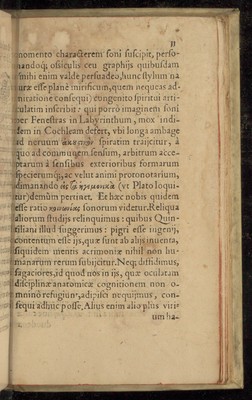 11
momento characterem soni suscipit, perso-
nandoq; ossiculis ceu graphijs quibusdam
(mihi enim valde persuadeo, hunc stylum na
turæ esse planè mirificum, quem nequeas ad-
miratione consequi) congenito spiritui arti-
culatim inscribit: qui porrò imaginem soni
per Fenestras in Labyrinthum, mox indi-
dem in Cochleam defert, vbi longa ambage
ad neruum spiratim traijcitur, à
quo ad communem sensum, arbitrum acce-
ptarum à sensibus exterioribus formarum
specierumq;, ac velut animi protonotarium,
dimanando (vt Plato loqui-
tur) demùm pertinet. Et hæc nobis quidem
esse ratio sonorum videtur. Reliqua
aliorum studijs relinquimus: quibus Quin-
tiliani illud suggerimus: pigri esse ingenij,
contentum esse ijs, quæ sunt ab alijs inuenta,
siquidem mentis acrimoniæ nihil non hu-
manarum rerum subijcitur. Neq; diffidimus,
sagaciores, id quod nos in ijs, quæ oculatam
disciplinæ anatomicæ cognitionem non o-
mninò refugiunt, adipisci nequijmus, con-
sequi adhuc posse. Alius enim alio plus viri-
um ha-